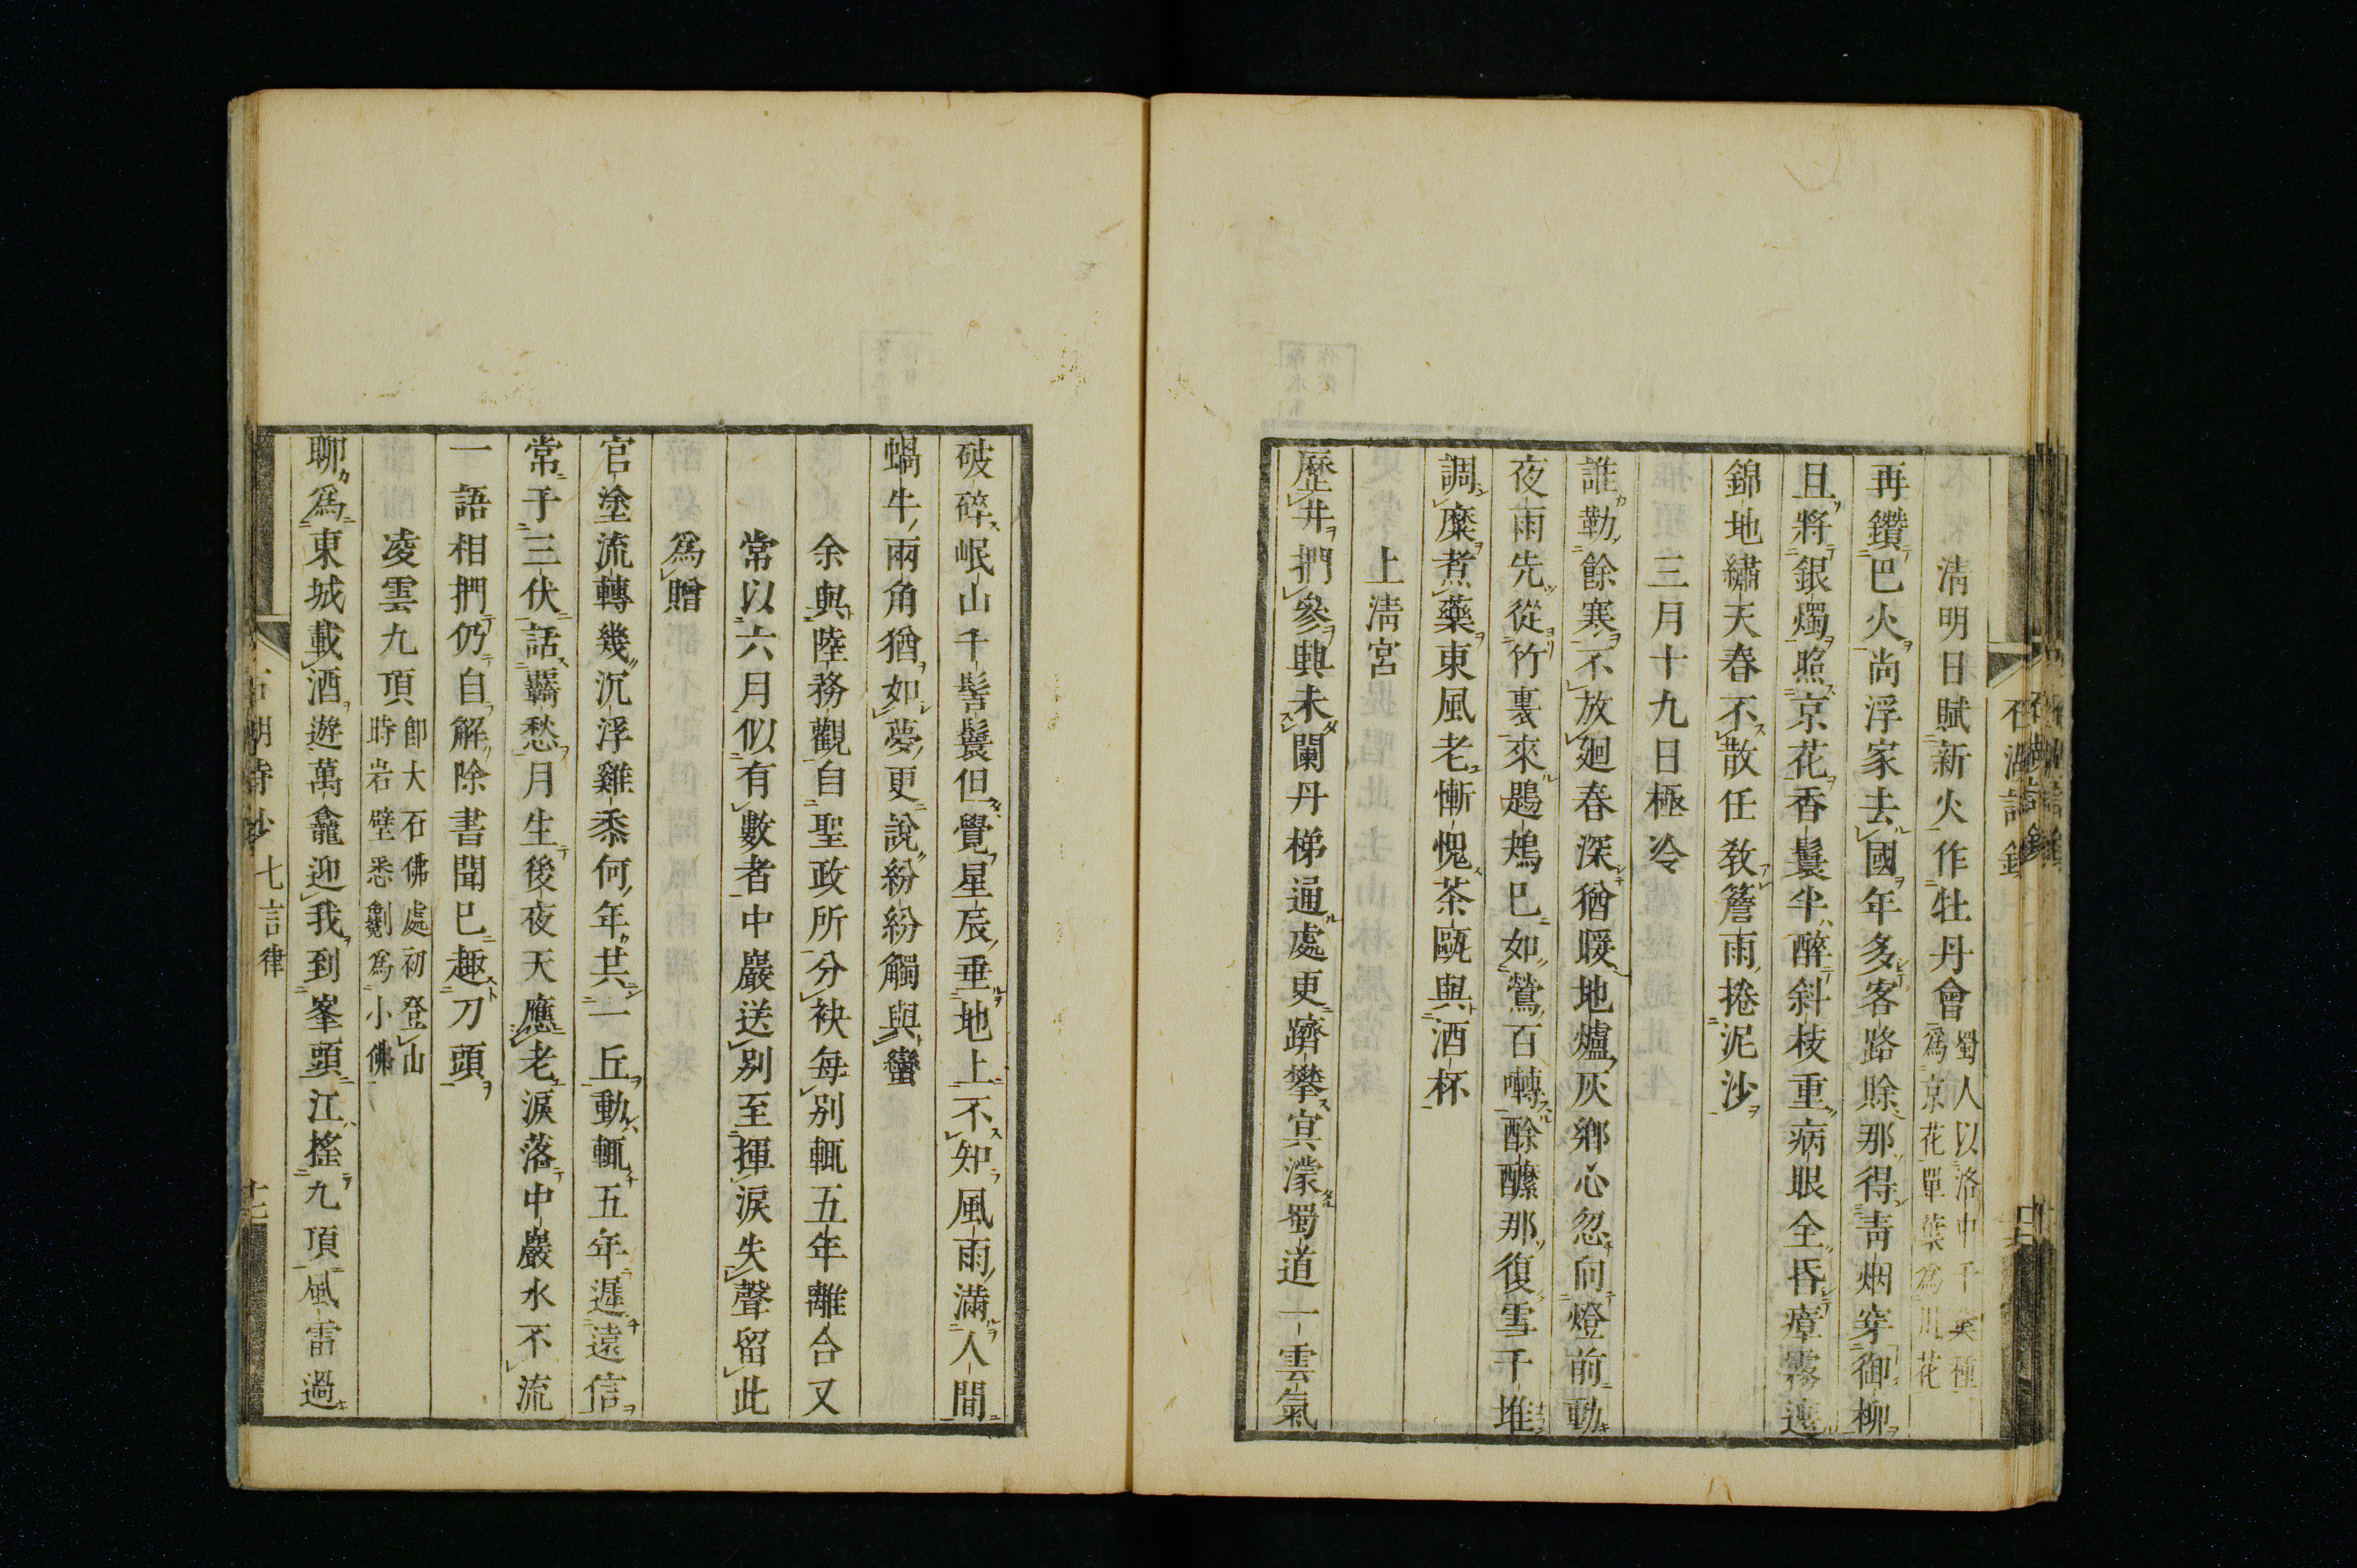 清明日賦新火作牡丹會蜀人以洛中千葉種
爲京花單葉爲川花
再鑽巴火尚浮家去國年多客路賖那得靑烟穿御柳
且將銀燭照京花香鬟半醉斜枝重病眼全昏瘴霧遮
錦地繡天春不散任教簷雨捲泥沙
三月十九日極冷
誰勒餘寒不放廻春深猶暖地爐灰鄉心忽向燈前動
夜雨先從竹裏來鶗鴂已如鶯百囀酴醾那復雪千堆
調糜煮藥東風老慚愧茶甌與酒杯
上淸宮
歷井捫參興未闌丹梯通處更躋攀冥濛蜀道一雲氣
破碎岷山千髻鬟但覺星辰垂地上不知風雨滿人間
蝸牛兩角猶如夢更說紛紛觸與蠻
余與陸務觀自聖政所分袂每别輒五年離合又
常以六月似有數者中巖送别至揮淚失聲留此
爲贈
官塗流轉幾沉浮雞黍何年共一丘動輒五年遲遠信
常于三伏話羇愁月生後夜天應老淚落中巖水不流
一語相捫仍自解除書聞已趣刀頭
凌雲九頂卽大石佛處初登山
時岩壁悉劖爲小佛
聊爲東城載酒遊萬龕迎我到峯頭江搖九頂風雷過
石湖詩鈔 七言律